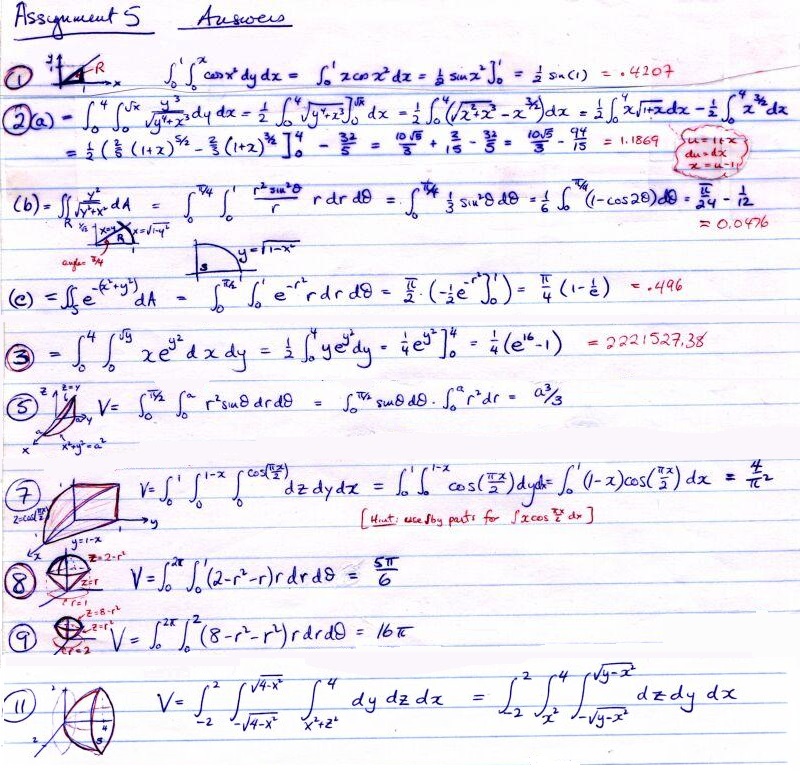 Assignment 5 Answers
① y 1 R 1 x ∫₀¹ ∫₀ˣ cos x² dy dx = ∫₀¹ x cos x² dx = ½ sin x² ]₀¹ = ½ sin(1) = .4207
②(a) = ∫₀⁴ ∫₀^√x y³/√(y⁴+x³) dy dx = ½ ∫₀⁴ √(y⁴+x³) ]₀^√x dx = ½ ∫₀⁴ (√(x²+x³) − x^(3/2)) dx = ½ ∫₀⁴ x√(1+x) dx − ½ ∫₀⁴ x^(3/2) dx
= ½ (⅖ (1+x)^(5/2) − ⅔ (1+x)^(3/2) ]₀⁴ − 32/5 = 10√5/3 + 2/15 − 32/5 = 10√5/3 − 94/15 = 1.1869
u = 1+x
du = dx
x = u−1
(b) = ∬_R y²/√(y²+x²) dA = ∫₀^(π/4) ∫₀¹ r² sin²θ/r r dr dθ = ∫₀^(π/4) ⅓ sin²θ dθ = ⅙ ∫₀^(π/4) (1−cos2θ) dθ = π/24 − 1/12
= 0.0476
x=y R x=√(1−y²) 1
angle = π/4
S y=√(1−x²)
(c) = ∬_S e^−(x²+y²) dA = ∫₀^(π/2) ∫₀¹ e^(−r²) r dr dθ = π/2 · (−½ e^(−r²) ]₀¹) = π/4 (1 − 1/e) = .496
③ = ∫₀⁴ ∫₀^√y x e^(y²) dx dy = ½ ∫₀⁴ y e^(y²) dy = ¼ e^(y²) ]₀⁴ = ¼ (e¹⁶ − 1) = 2221527.38
⑤ z z=y y x x²+y²=a² V = ∫₀^(π/2) ∫₀ᵃ r² sinθ dr dθ = ∫₀^(π/2) sinθ dθ · ∫₀ᵃ r² dr = a³/3
⑦ z=cos(πx/2) y x y=1−x V = ∫₀¹ ∫₀^(1−x) ∫₀^cos(πx/2) dz dy dx = ∫₀¹ ∫₀^(1−x) cos(πx/2) dy dx = ∫₀¹ (1−x) cos(πx/2) dx = 4/π²
[Hint: use by parts for ∫ x cos πx/2 dx]
⑧ z=2−r² z=r r=1 V = ∫₀^(2π) ∫₀¹ (2−r²−r) r dr dθ = 5π/6
⑨ z=8−r² z=r² r=2 V = ∫₀^(2π) ∫₀² (8−r²−r²) r dr dθ = 16π
⑪ 2 2 4 V = ∫₋₂² ∫_−√(4−x²)^√(4−x²) ∫_(x²+z²)⁴ dy dz dx = ∫₋₂² ∫_(x²)⁴ ∫_−√(y−x²)^√(y−x²) dz dy dx